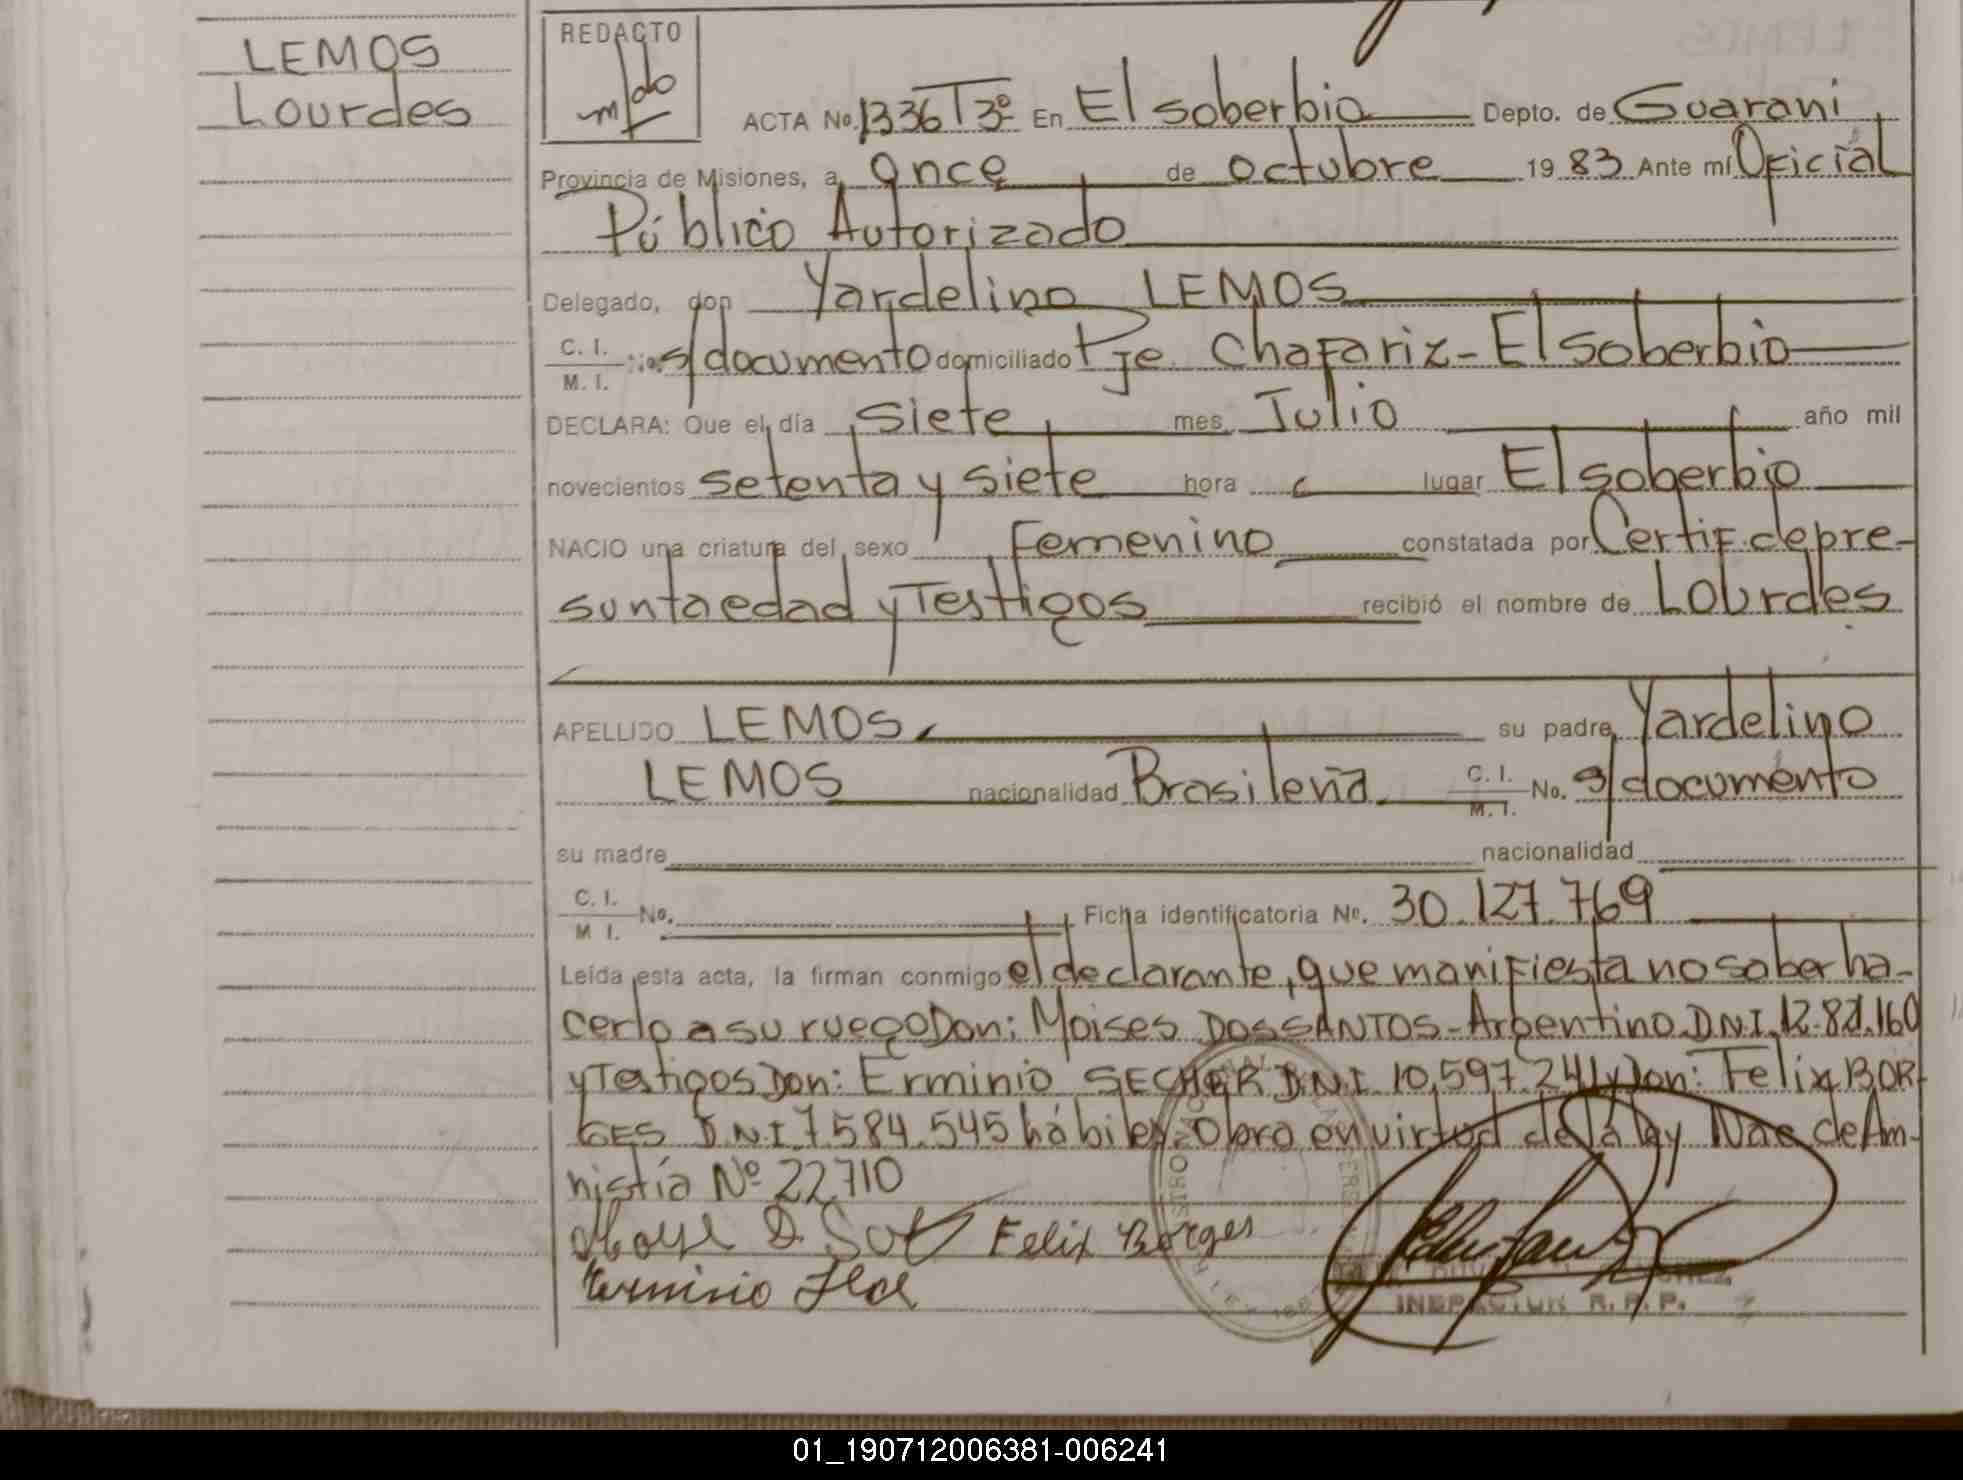 LEMOS
Lourdes
REDACTO
ACTA No. 1336 T 3º En El soberbio Depto. de Guarani
Provincia de Misiones, a once de octubre 19 83 Ante mí Oficial
Público Autorizado
Delegado, don Yardelino LEMOS
C. I.
M. I. No. s/documento domiciliado Pje. Chafariz - El soberbio
DECLARA: Que el día siete mes Julio año mil
novecientos setenta y siete hora lugar El soberbio
NACIO una criatura del sexo Femenino constatada por Certif. de pre-
sunta edad y Testigos recibió el nombre de Lourdes
APELLIDO LEMOS su padre Yardelino
LEMOS nacionalidad Brasileña C. I.
M. I. No. s/documento
su madre nacionalidad
C. I.
M I. No. Ficha identificatoria No. 30.127.769
Leída esta acta, la firman conmigo el declarante, que manifiesta no saber ha-
cerlo a su ruego Don: Moises DOS SANTOS - Argentino D.N.I.
y Testigos Don: Erminio SECHER D.N.I 10.597.241 y Don: Felix BOR-
GES D.N.I 7.584.545 hábiles. Obra en virtud de la ley Nac de Am-
nistía Nº 22.710
Felix Borges
Erminio
INSPECTOR R. P. P.
01_190712006381-006241